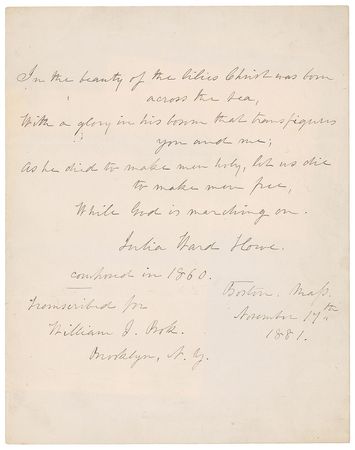 In the beauty of the lilies Christ was born
across the sea,
With a glory in his bosom that transfigures
you and me;
As he died to make men holy, let us die
to make men free,
While God is marching on.
Julia Ward Howe.
composed in 1860.
Boston, Mass.
Transcribed for
November 17th
William J. Bok.
1881.
Brooklyn, N. Y.